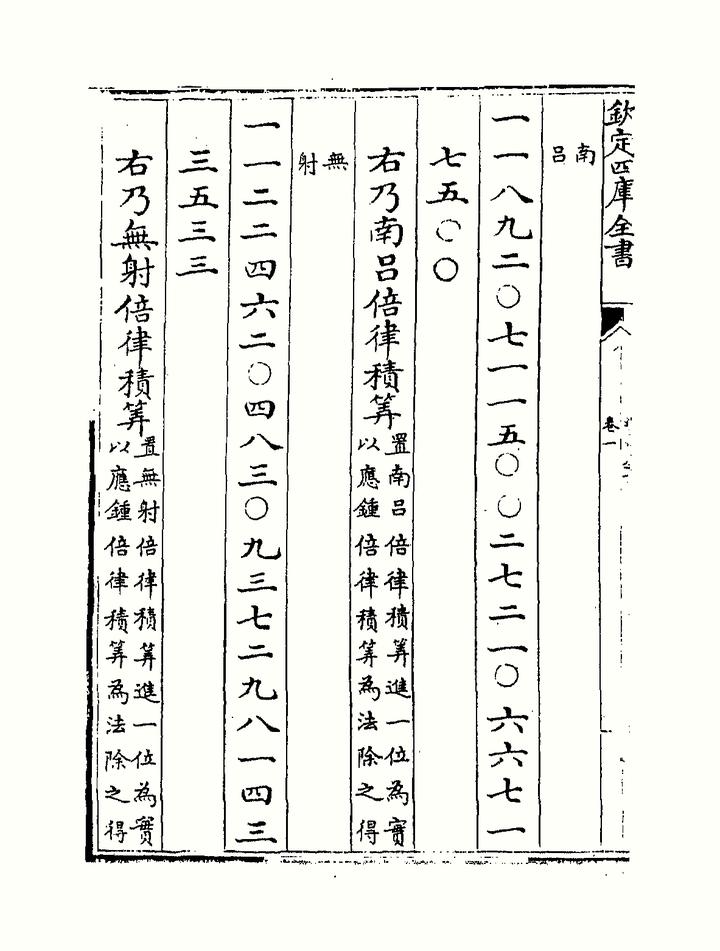 欽定四庫全書
卷一
南呂
一一八九二〇七一一五〇〇二七二一〇六六七一
七五〇〇
右乃南呂倍律積筭
置南呂倍律積筭進一位為實
以應鍾倍律積筭為法除之得
無射
一一二二四六二〇四八三〇九三七二九八一四三
三五三三
右乃無射倍律積筭
置無射倍律積筭進一位為實
以應鍾倍律積筭為法除之得